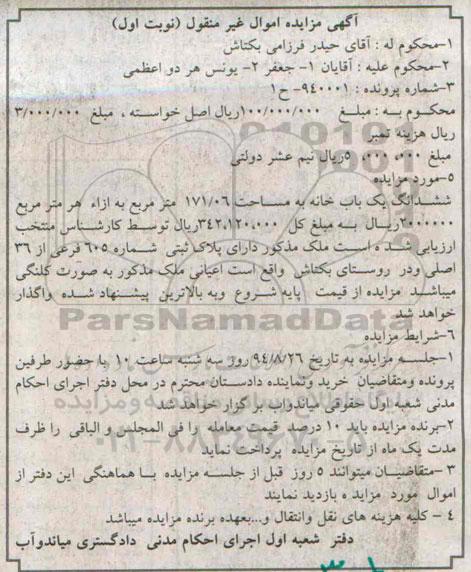 آگهی مزایده اموال غیر منقول (نوبت اول)
۱-محکوم له : آقای حیدر فرزامی بکتاش
۲-محکوم علیه : آقایان ۱- جعفر ۲- یونس هر دو اعظمی
۳-شماره پرونده : ۹۴۰۰۰۱- ح۱
محکوم به : مبلغ ۱۰۰/۰۰۰/۰۰۰ریال اصل خواسته ، مبلغ ۳/۰۰۰/۰۰۰
ریال هزینه تمبر
مبلغ ۵،۰۰۰،۰۰۰ریال نیم عشر دولتی
۵-مورد مزایده
ششدانگ یک باب خانه به مساحت ۱۷۱/۰۶ متر مربع به ازاء هر متر مربع
۲۰۰۰۰۰۰ریال به مبلغ کل ۳۴۲،۱۲۰،۰۰۰ریال توسط کارشناس منتخب
ارزیابی شده است ملک مذکور دارای پلاک ثبتی شماره ۶۰۵ فرعی از ۳۶
اصلی ودر روستای بکتاش واقع است اعیانی ملک مذکور به صورت کلنگی
میباشد مزایده از قیمت پایه شروع وبه بالاترین پیشنهاد شده واگذار
خواهد شد
ParsNamadData
۶-شرایط مزایده
۱-جلسه مزایده به تاریخ ۹۴/۸/۲۶ روز سه شنبه ساعت ۱۰ با حضور طرفین
پرونده ومتقاضیان خرید ونماینده دادستان محترم در محل دفتر اجرای احکام
مدنی شعبه اول حقوقی میاندواب بر گزار خواهد شد
۲-برنده مزایده باید ۱۰ درصد قیمت معامله را فی المجلس و الباقی را ظرف
مدت یک ماه از تاریخ مزایده پرداخت نماید
۰۲۱-۸۸۳۴۹۶۷۰-۵
۳ -متقاضیان میتوانند ۵ روز قبل از جلسه مزایده با هماهنگی این دفتر از
اموال مورد مزایده بازدید نمایند
۴ - کلیه هزینه های نقل وانتقال و...بعهده برنده مزایده میباشد
دفتر شعبه اول اجرای احکام مدنی دادگستری میاندوآب